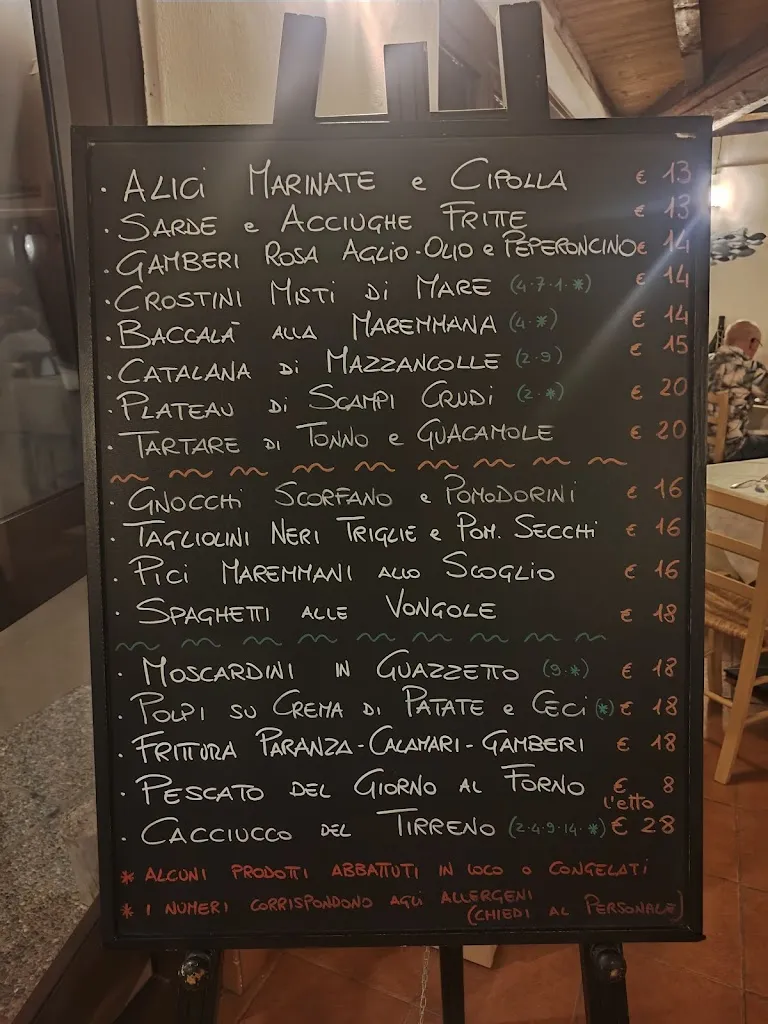 · ALICI MARINATE e CIPOLLA € 13
· SARDE e ACCIUGHE FRITTE € 13
· GAMBERI ROSA AGLIO-OLIO e PEPERONCINO € 14
· CROSTINI MISTI DI MARE (4·7·1·*) € 14
· BACCALÀ ALLA MAREMMANA (4·*) € 14
· CATALANA DI MAZZANCOLLE (2·9) € 15
· PLATEAU DI SCAMPI CRUDI (2·*) € 20
· TARTARE DI TONNO e GUACAMOLE € 20
· GNOCCHI SCORFANO e POMODORINI € 16
· TAGLIOLINI NERI TRIGLIE e POM. SECCHI € 16
· PICI MAREMMANI ALLO SCOGLIO € 16
· SPAGHETTI ALLE VONGOLE € 18
· MOSCARDINI IN GUAZZETTO (9·*) € 18
· POLPI SU CREMA DI PATATE e CECI (*) € 18
· FRITTURA PARANZA-CALAMARI-GAMBERI € 18
· PESCATO DEL GIORNO AL FORNO € 8
l'etto
· CACCIUCCO DEL TIRRENO (2·4·9·14·*) € 28
* ALCUNI PRODOTTI ABBATTUTI IN LOCO O CONGELATI
* I NUMERI CORRISPONDONO AGLI ALLERGENI
(CHIEDI AL PERSONALE)